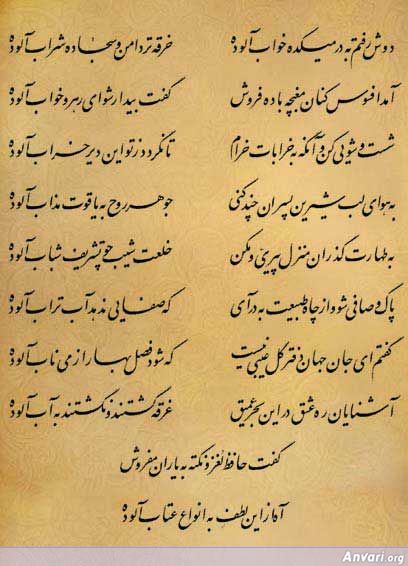 دوش رفتم به در میکده خواب آلوده خرقه تر دامن و سجاده شراب آلوده
آمد افسوس کنان مغبچه باده فروش گفت بیدار شو ای رهرو خواب آلوده
شست و شویی کن و آنگه به خرابات خرام تا نگردد ز تو این دیر خراب آلوده
به هوای لب شیرین پسران چند کنی جوهر روح به یاقوت مذاب آلوده
به طهارت گذران منزل پیری و مکن خلعت شیب چو تشریف شباب آلوده
پاک و صافی شو و از چاه طبیعت به درآی که صفایی ندهد آب تراب آلوده
گفتم ای جان جهان دفتر گل عیبی نیست که شود فصل بهار از می ناب آلوده
آشنایان ره عشق در این بحر عمیق غرقه گشتند و نگشتند به آب آلوده
گفت حافظ لغز و نکته به یاران مفروش
آه از این لطف به انواع عتاب آلوده
Anvari.org